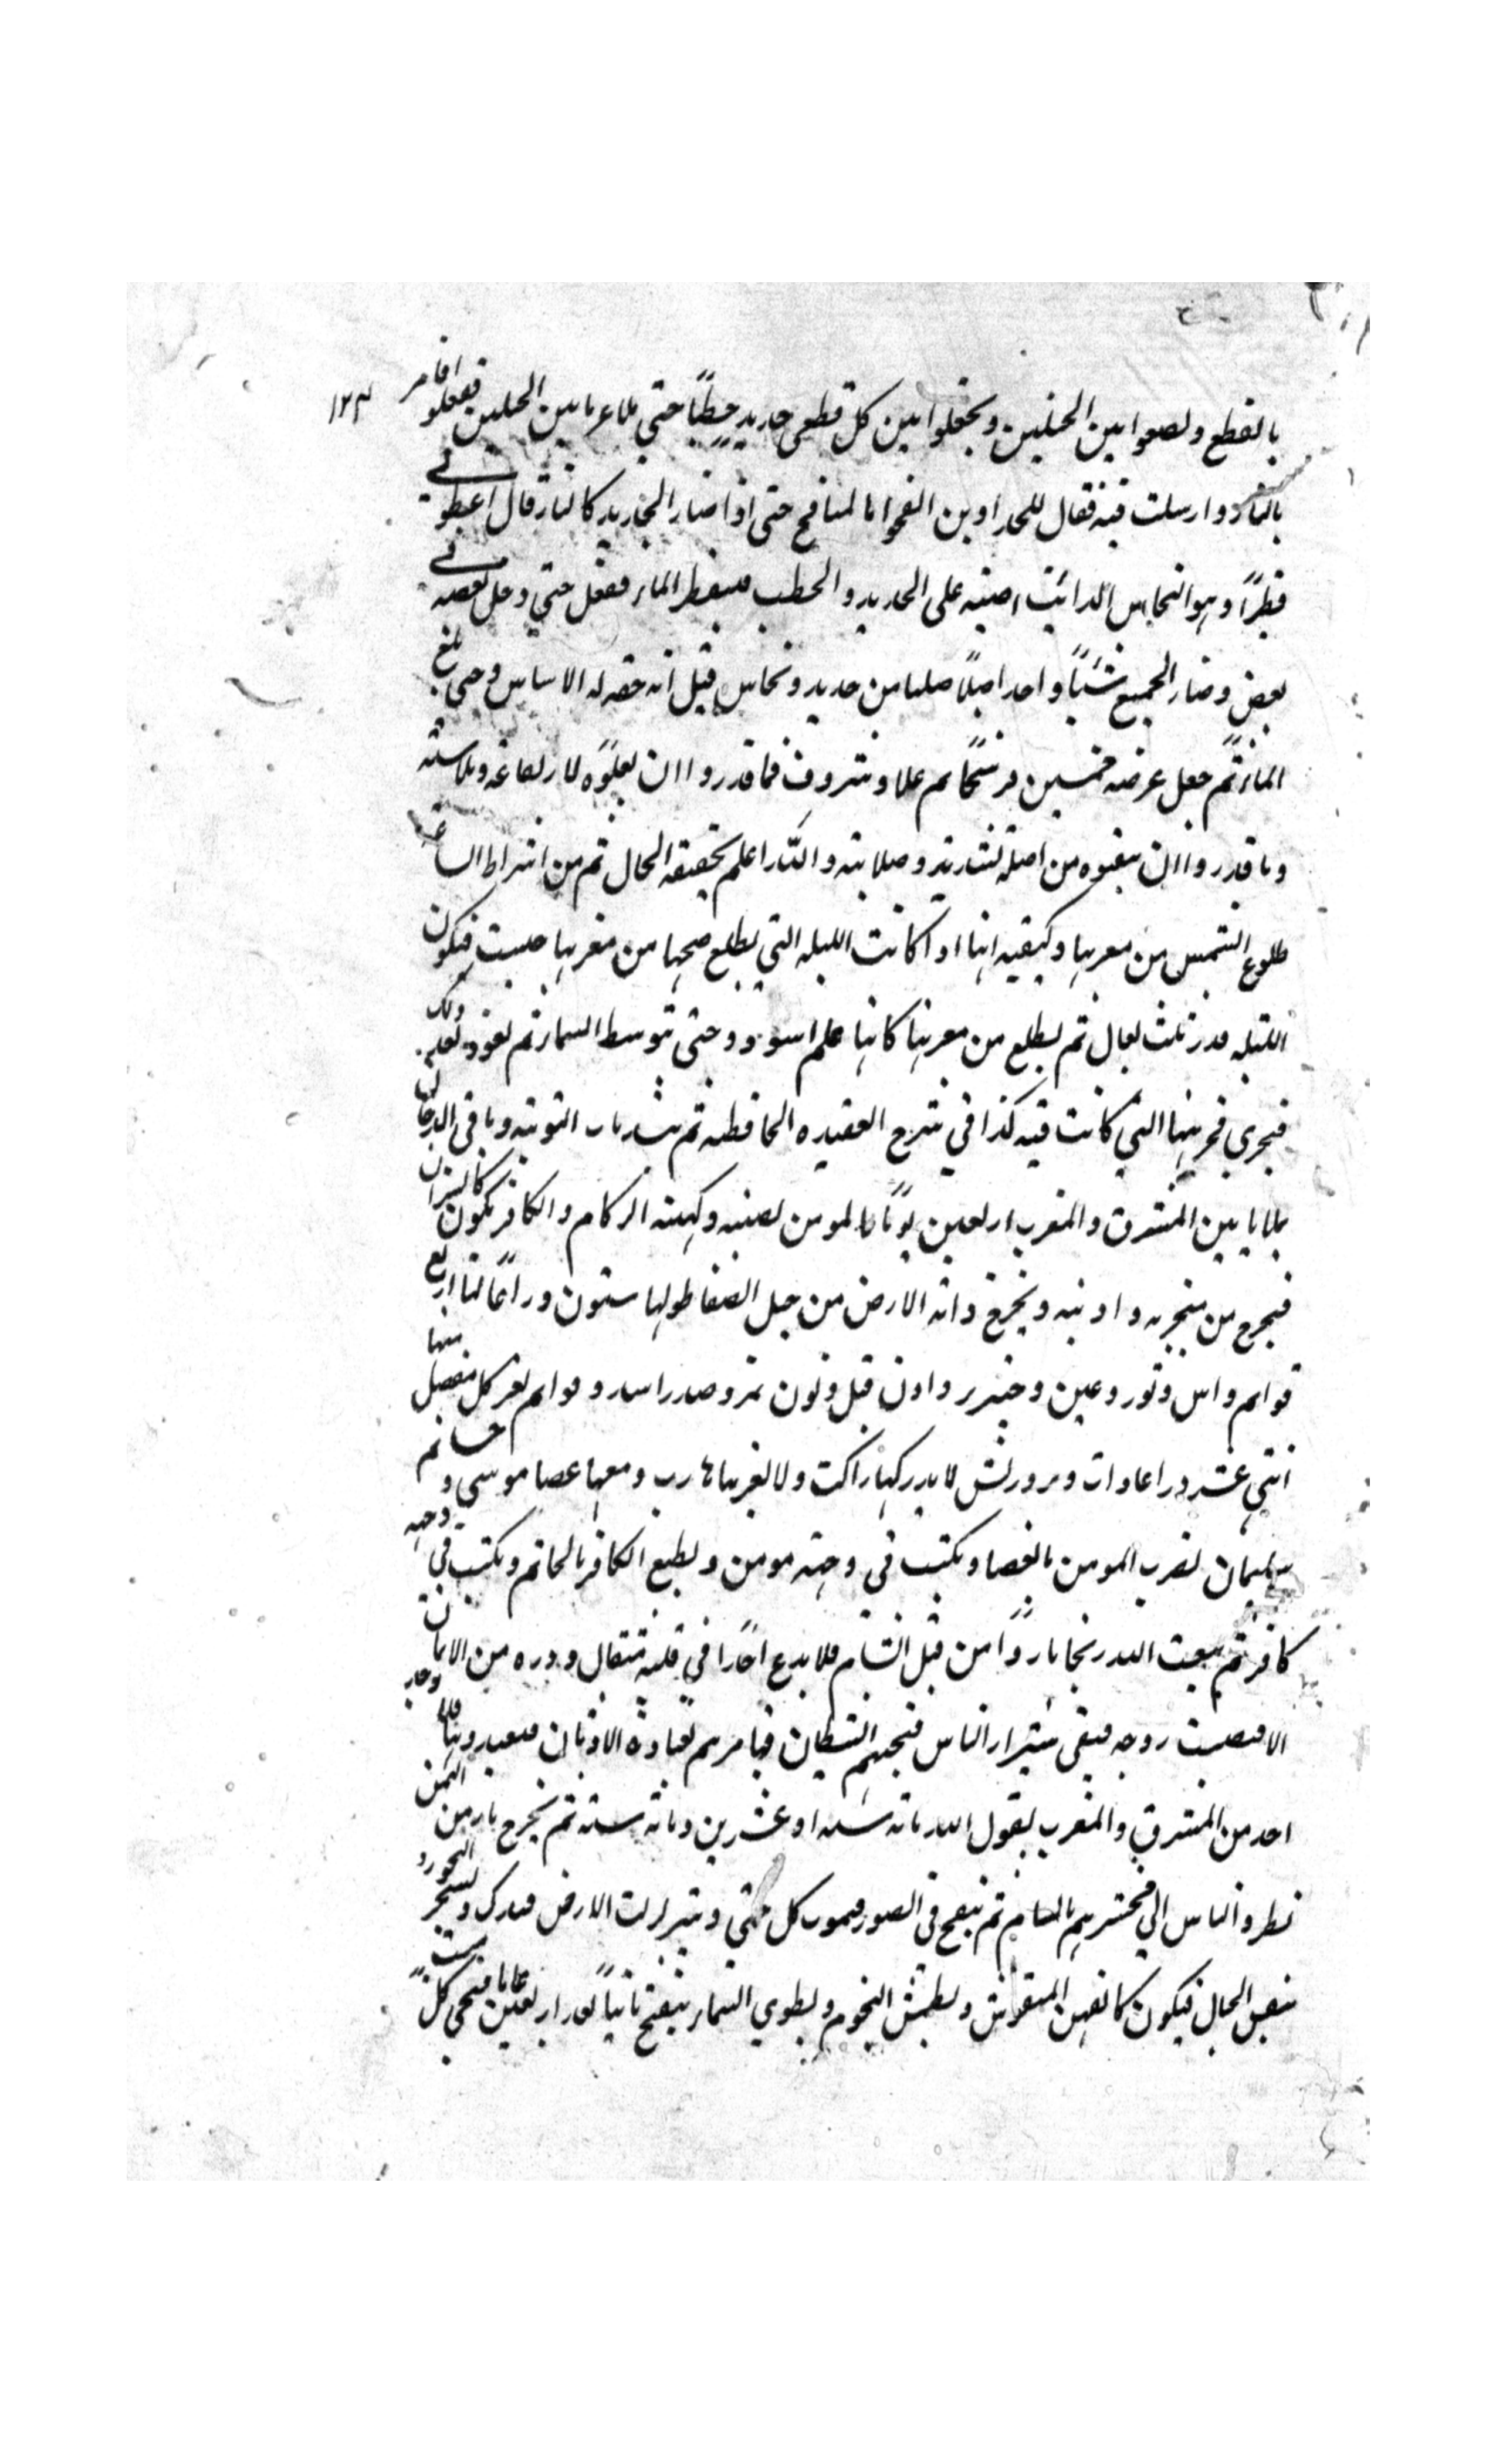 ١٢٣
بالقطع ولصعوا بين الجبلين ويجعلوا بين كل قطعى حديد حطبًا حتى ملا عر ما بين الجبلين ففعلو افامر
بالنار وارسلت فيه فقال للحدادين انفخوا بالمنافخ حتى اذا صار الحديد كالنار قال اعطونى
قطرًا وهو النحاس الذائب اصبه على الحديد والحطب ففعل حتى دخل بعضه فى
بعض وصار الجميع شيئًا واحدا جبلًا صلبا من حديد ونحاس قيل انه حفر له الاساس وحتى بلغ
الماء ثم جعل عرضه خمسين فرسخًا فما قدروا ان يعلوه لارتفاعه وملاسته
وما قدروا ان ينقبوه من اصله لشدته وصلابته والله اعلم بحقيقة الحال ثم من اشراط الساعة
طلوع الشمس من مغربها وكيفيه انها اذا كانت الليله التي يطلع صبحها من مغربها حبست فيكون
الليله قدر ثلث ليال ثم يطلع من مغربها كانها علم اسود وحتى تتوسط السماء ثم تعود بعد ذلك
فيجري فى مجريها التي كانت فيه كذا في شرح العقيده الحافظيه ثم يسد باب التوبه وياتى الدخان
يملا ما بين المشرق والمغرب اربعين يومًا فالمومن يصيبه كهيئه الزكام والكافر يكون كالسكران
فيخرج من منخره واذنيه ويخرج دابه الارض من جبل الصفا طولها ستون ذراعًا لها اربع
قوايم راس ثور وعين خنزير واذن فيل ولون نمر وصدر اسد وقوايم بعير كل مفصل منها
اثنى عشر ذراعا ذات وبر وريش لا يدركها راكب ولا يفوتها هارب ومعها عصا موسى و خاتم
سليمان تضرب المومن بالعصا ويكتب فى وجهه مومن ويطبع الكافر بالخاتم ويكتب فى وجهه
كافر ثم يبعث الله ريحا باردًا من قبل الشام فلا يدع احدًا في قلبه مثقال ذره من الايمان
الا قبضت روحه فيبقى شرار الناس فيجيئهم الشيطان فيامرهم بعبادة الاوثان فيعبدونها فلا يوجد
احد من المشرق والمغرب يقول الله مائه سنه او عشرين ومائه سنه ثم يخرج نار من اليمن
يطرد الناس الى محشرهم بالشام ثم ينفخ فى الصور فيموت كل حى ويتزلزلت الارض فتدك ويسجر البحور و
الجبال فيكون كالعهن المنفوش ويطمس النجوم ويطوي السماء ثم ينفخ ثانيًا بعد اربعين عاما فيحيى كل